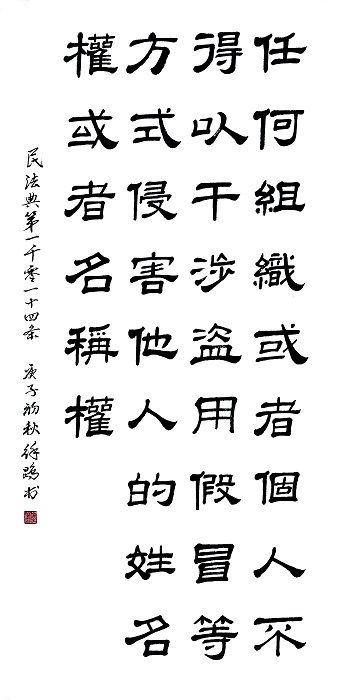 任何組織或者個人不
得以干涉盜用假冒等
方式侵害他人的姓名
權或者名稱權
民法典第一千零一十四条 庚子初秋 徐鸿书